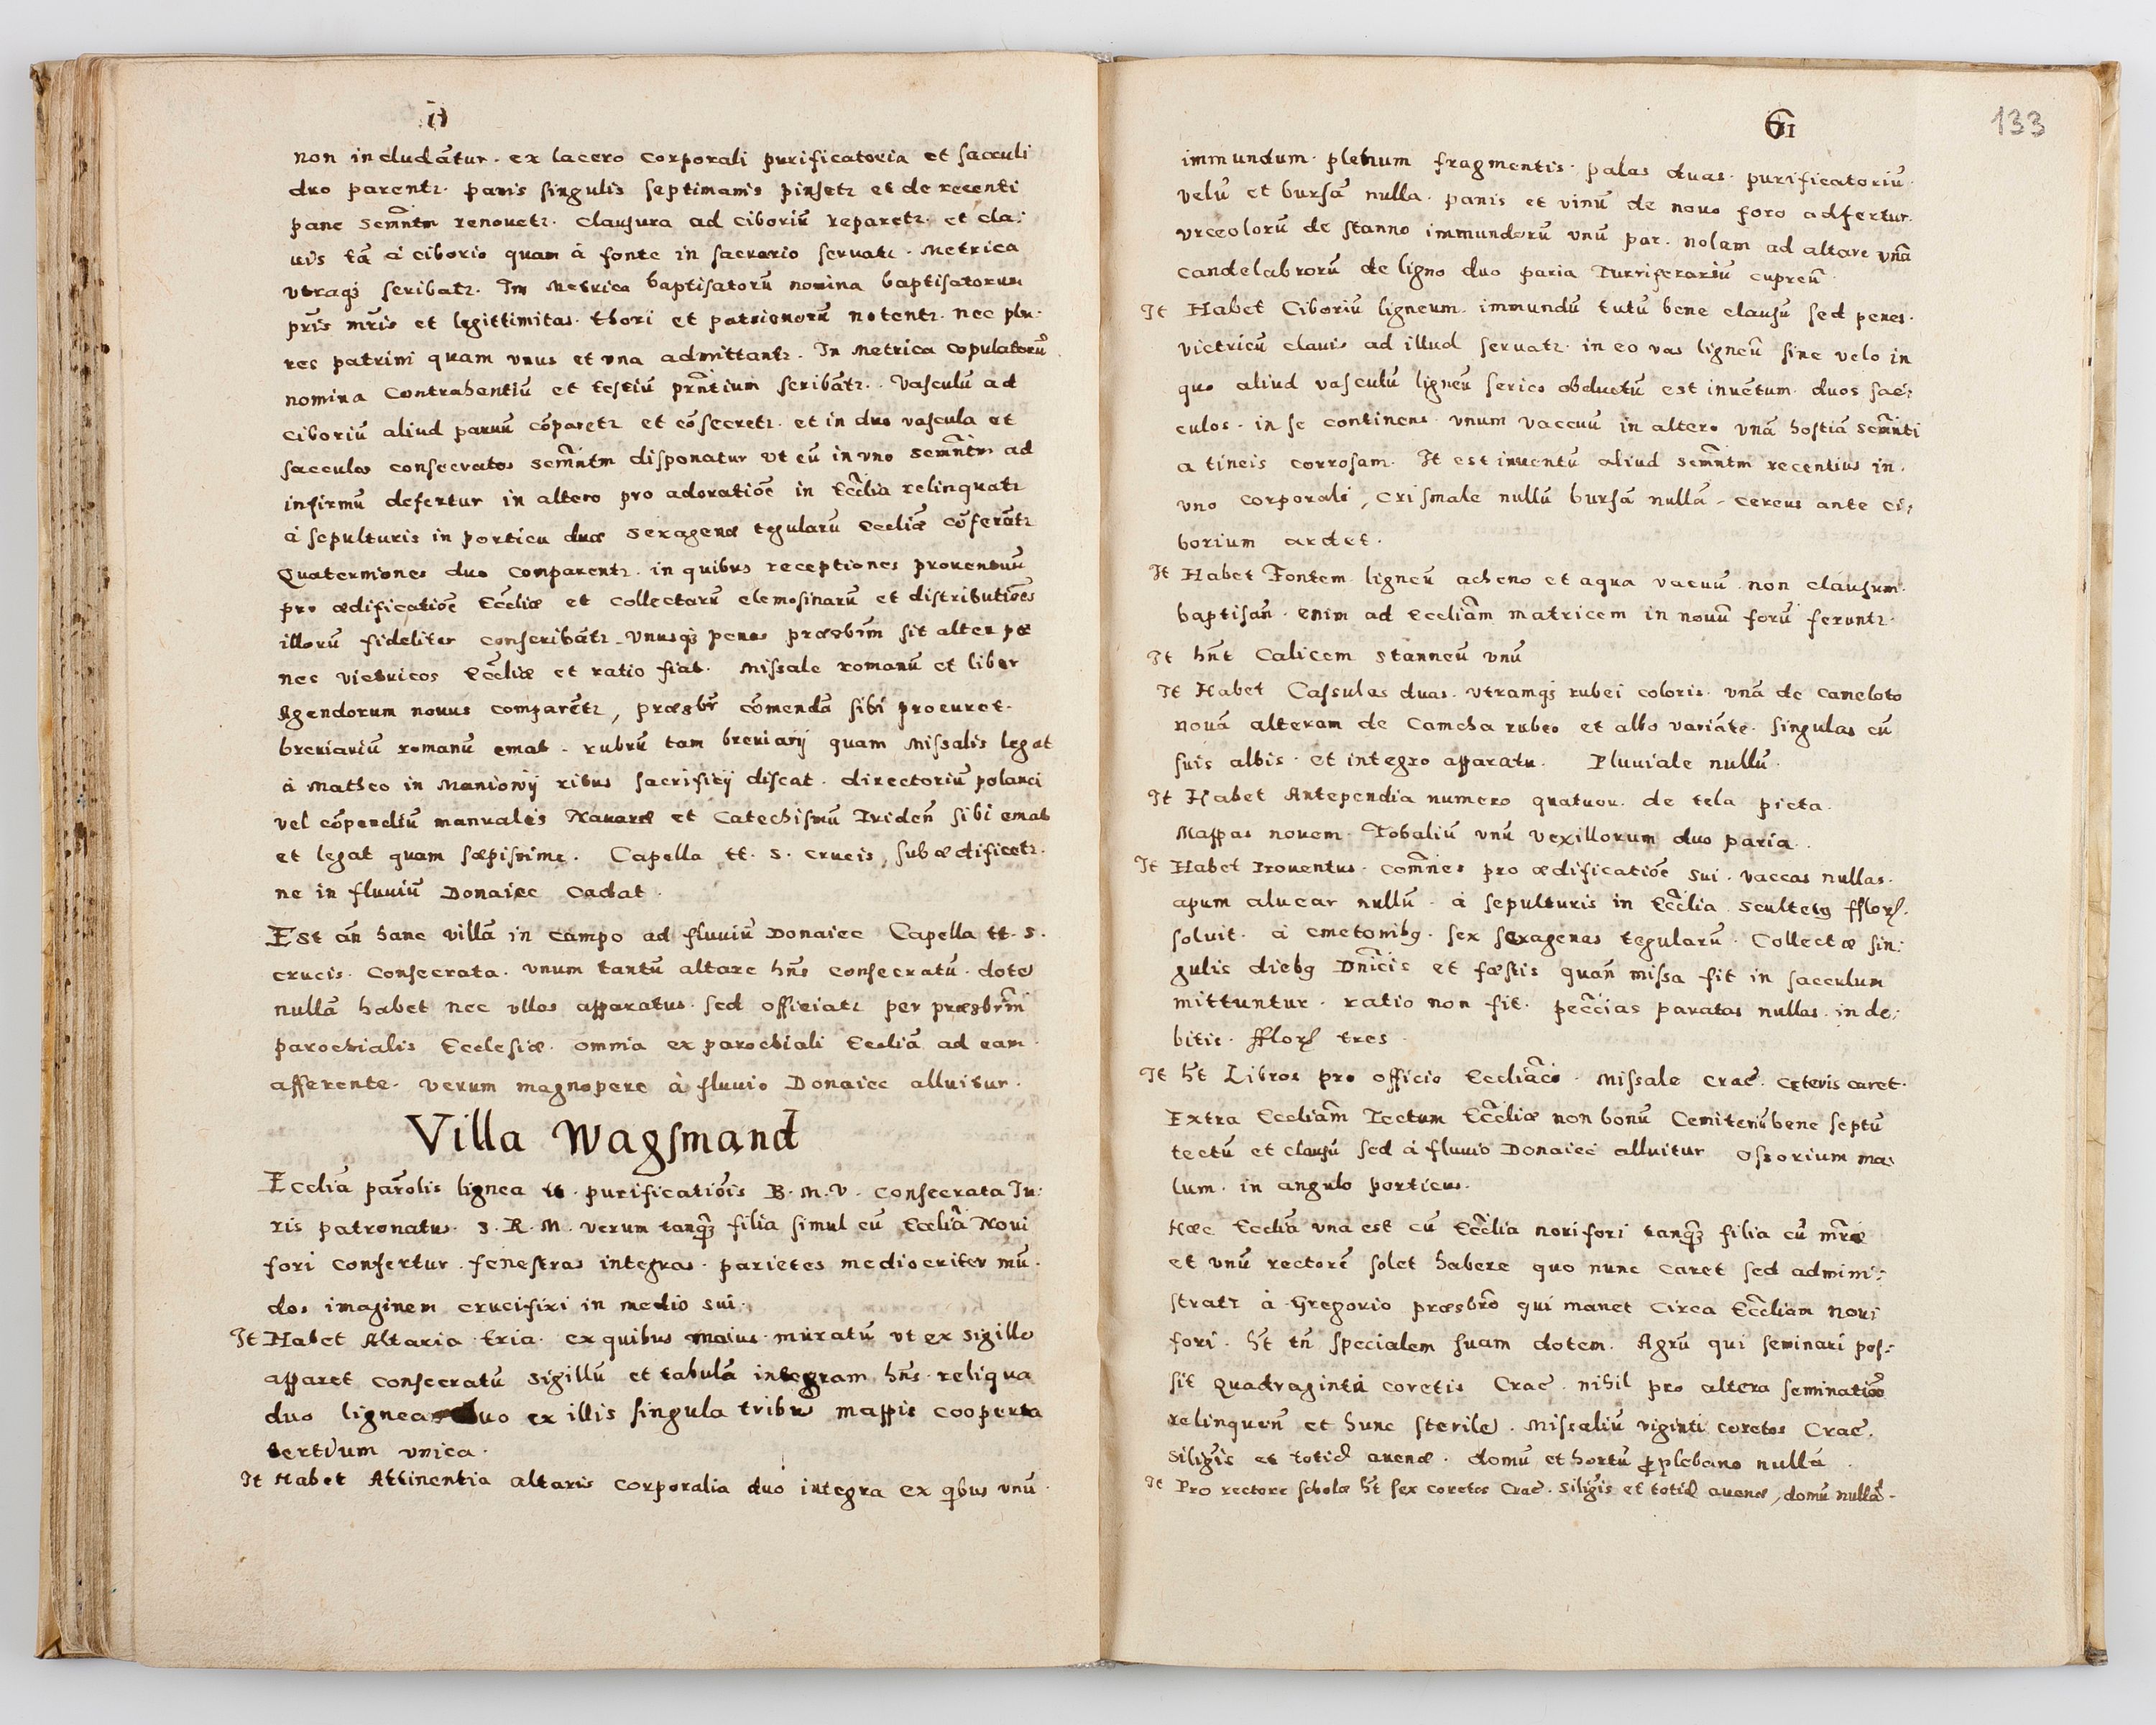 non includātur. ex lacero corporali purificatoria et sacculi
duo parentr. panis singulis septimanis pinsetr et de recenti
pane Semn̄tm renouetr. clausura ad ciboriū reparetr. et cla:
uis tā à ciborio quam à fonte in sacrario seruatr. Metrica
vtraqȝ scribatr. In Metrica baptisatorū nomina baptisatorum
pr̄is mr̄is et legittimitas thori et patrienorū notentr. nec plu:
res patrini quam vnus et vna admittantr. In Metrica copulatorū
nomina Contrahentiū et testiū prn̄tium scribātr. Vasculū ad
ciboriū aliud paruū cōparetr et cōsecretr. et in duo vascula et
sacculos consecratos semn̄tm disponatur vt cū in vno semn̄tm ad
infirmū defertur in altero pro adoratiōe in Eccl̄ia relinquatr
à sepulturis in porticu duæ sexagenæ tegularū eccliæ cōferātr
Quaterniones duo comparentr. in quibus receptiones prouentuū
pro ædificatiōe Eccl̄iæ et collectarū elemosinarū et distributiōes
illorū fideliter conscribātr. vnusqȝ penes præsbrm̄ sit alter pœ
nes victricos Eccl̄iæ et ratio fiat. Missale romanū et liber
Agendorum nouus comparētr, præsbr̄ cōmendā sibi procuret.
breuiariū romanū emat. rubrū tam breuiarij quam Missalis legat
à Matheo in Maniowij ritus sacrificij discat. directoriū polanci
vel cōpendiū manualis Nauaræ et Catechismū Triden̄ sibi emat
et legat quam sæpissime. Capella tt. S. crucis, subædificetr.
ne in fluuiū Donaiec cadat.
Est an̄ hanc villā in campo ad fluuiū Donaiec Capella tt. S.
crucis. Consecrata. vnum tantū altare hn̄s consecratū. dotes
nullā habet nec vllos apparatus. sed officiatr per præsbrm̄
parochialis Ecclesiæ. omnia ex parochiali Eccliā ad eam
afferente. verum magnopere à fluuio Donaiec alluitur.
Villa Wagsmand
Ecclia parōlis lignea tt. purificatiōis B. M. V. consecrata Iu:
ris patronatus. S. R. M. verum tanqȝ filia simul cū Eccliā Noui
fori confertur. fenestras integras. parietes mediocriter mū:
dos imaginem crucifixi in medio sui.
It Habet Altaria tria. ex quibus maius muratū vt ex sigillo
apparet consecratū sigillū et tabulā integram hn̄s. reliqua
duo lignea duo ex illis singula tribus mappis cooperta
tertium vnica.
It Habet Attinentia altaris corporalia duo integra ex qibus vnū
61 133
immundum. plenum fragmentis. palas duas. purificatoriū.
velū et bursā nulla. panis et vinū de nouo foro adfertur.
vrceolorū de stanno immundorū vnū par. nolam ad altare vnā
candelabrorū de ligno duo paria Turriferariū cupreū.
It Habet Ciboriū ligneum. immundū tutū bene clausū sed penes.
victricū clauis ad illud seruatr. in eo vas ligneū sine velo in
quo aliud vasculū ligneū serico obductū est inuētum. duos sac:
culos. in se continens. vnum vaccuū in altero vnā hostiā semn̄ti
a tineis corrosam. It est inuentū aliud semn̄tm recentius in.
vno corporali, crismale nullū bursā nullā. cereus ante ci:
borium ardet.
It Habet Fontem ligneū acheno et aqua vacuū non clausum.
baptisan̄. enim ad eccliam̄ matricem in nouū forū feruntr.
It hn̄t Calicem stanneū vnū
It Habet Cassulas duas. vtramqȝ rubei coloris. vnā de cameloto
nouā alteram de Camcha rubeo et albo variāte. singulas cū
suis albis. et integro apparatu. Pluuiale nullū.
It Habet Antependia numero quatuor. de tela picta.
Mappas nouem. Tobaliū vnū vexillorum duo paria.
It Habet Prouentus. comn̄es pro ædificatiōe sui. vaccas nullas.
apum alucar nullū. à sepulturis in Eccl̄ia scultetꝯ fflorꝭ.
soluit. à cmetonibꝯ. sex sexagenas tegularū. Collectæ sin:
gulis diebꝯ Dn̄icis et fæstis quan̄ missa fit in sacculum
mittuntur. ratio non fit. pecc̄ias paratas nullas. in de:
bitis. fflorꝭ tres.
It h̄t Libros pro officio Eccliāco. Missale Crac̄. cęteris caret.
Extra Eccliam̄ Tectum Eccl̄iæ non bonū Cemiteriū bene septū
tectū et clausū sed à fluuio Donaiec alluitur Ossorium ma:
lum. in angulo porticus.
Hæc Eccliā vna est cū Eccl̄ia nouifori tanqȝ filia cū mr̄æ
et vnū rectorē solet habere quo nunc caret sed admini:
stratr à Gregorio præsbrō qui manet circa Eccl̄iam noui
fori. h̄t tn̄ specialem suam dotem. Agrū qui seminari pos:
sit quadraginta coretis Crac̄. nihil pro altera seminatiōe
relinquen̄ et hunc sterile. Missaliū viginti coretos Crac̄.
siligis et totid̄ auenæ. domū et hortū ꝓ plebano nullā.
It Pro rectore scholæ h̄t sex coretos Crac̄. siligis et totid̄ auenæ, domū nullā.